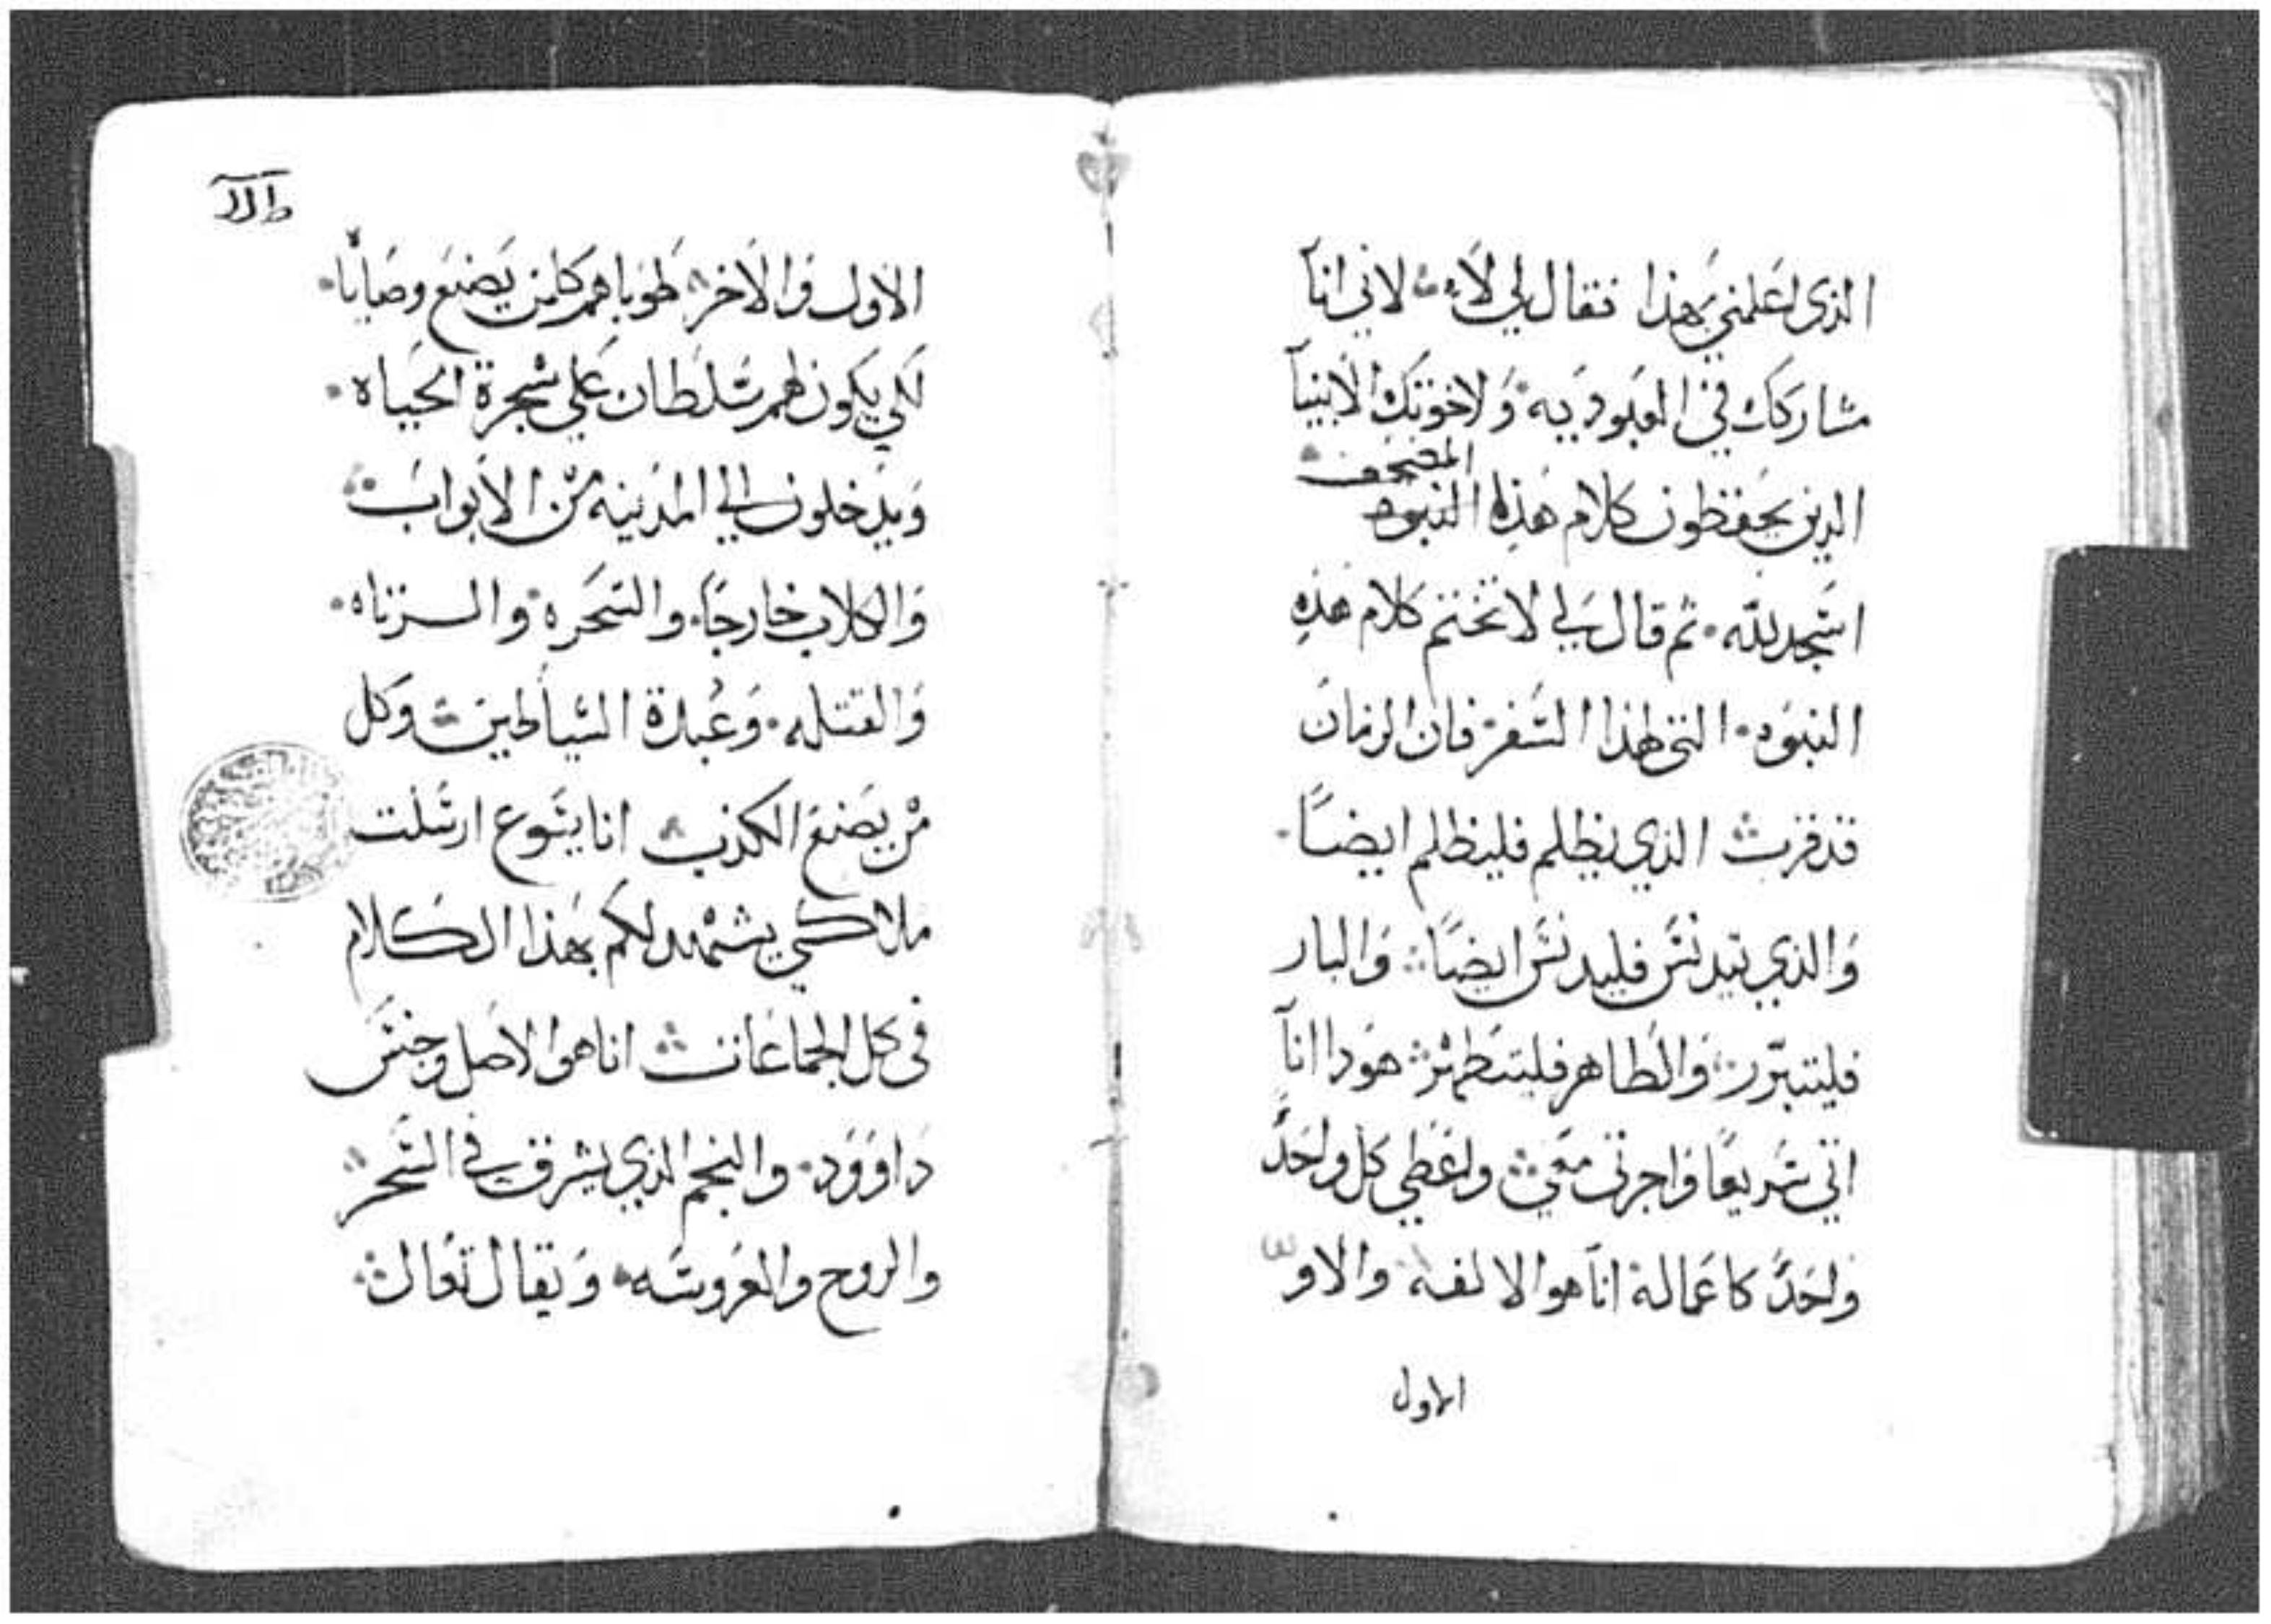 الذى اعلمني بهذا فقال لي لا لاني انا
مشاركك في العبوديه ولاخوتك الانبيا
المصحف
الدين يحفظون كلام هذه النبوه
اسجد لله ثم قال لي لا تختم كلام هذه
النبوه التى لهذا السفر فان الزمان
قد قرب الذي يظلم فليظلم ايضًا
والذي يتدنس فليدنس ايضًا والبار
فليتبرر والطاهر فليتطهر هودا انا
اتي سريعًا واجرتى معي واعطي كل واحدً
واحدً كاعماله انا هو الالفه والاو
الاول
الاول والاخر طوباهم كلمن يضع وصايا
لكي يكون لهم سلطان علي شجرة الحياه
ويدخلون الي المدينه من الابواب
والكلاب خارجًا والسحره والزناه
والقتله وعبدة الشياطين وكل
من يصنع الكذب انا يسوع ارسلت
ملاكي يشهد لكم بهذا الكلام
فى كل الجماعات انا هو الاصل وجنس
داوود والنجم الذي يشرق في السحر
والروح والعروسه ويقال تعال